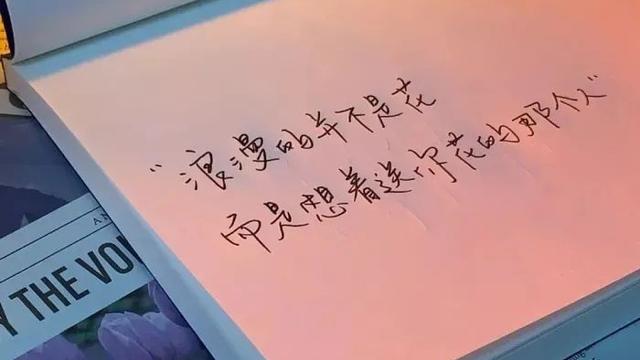 “浪漫的并不是花
而是想着送你花的那个人”
Y THE VO